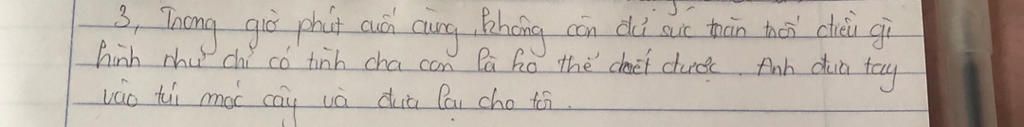 3, Trong giờ phút cuối cùng, không còn đủ sức trăn trối điều gì
hình như chỉ có tình cha con là ko thể chết được. Anh đưa tay
vào túi móc cây và đưa lại cho tôi.